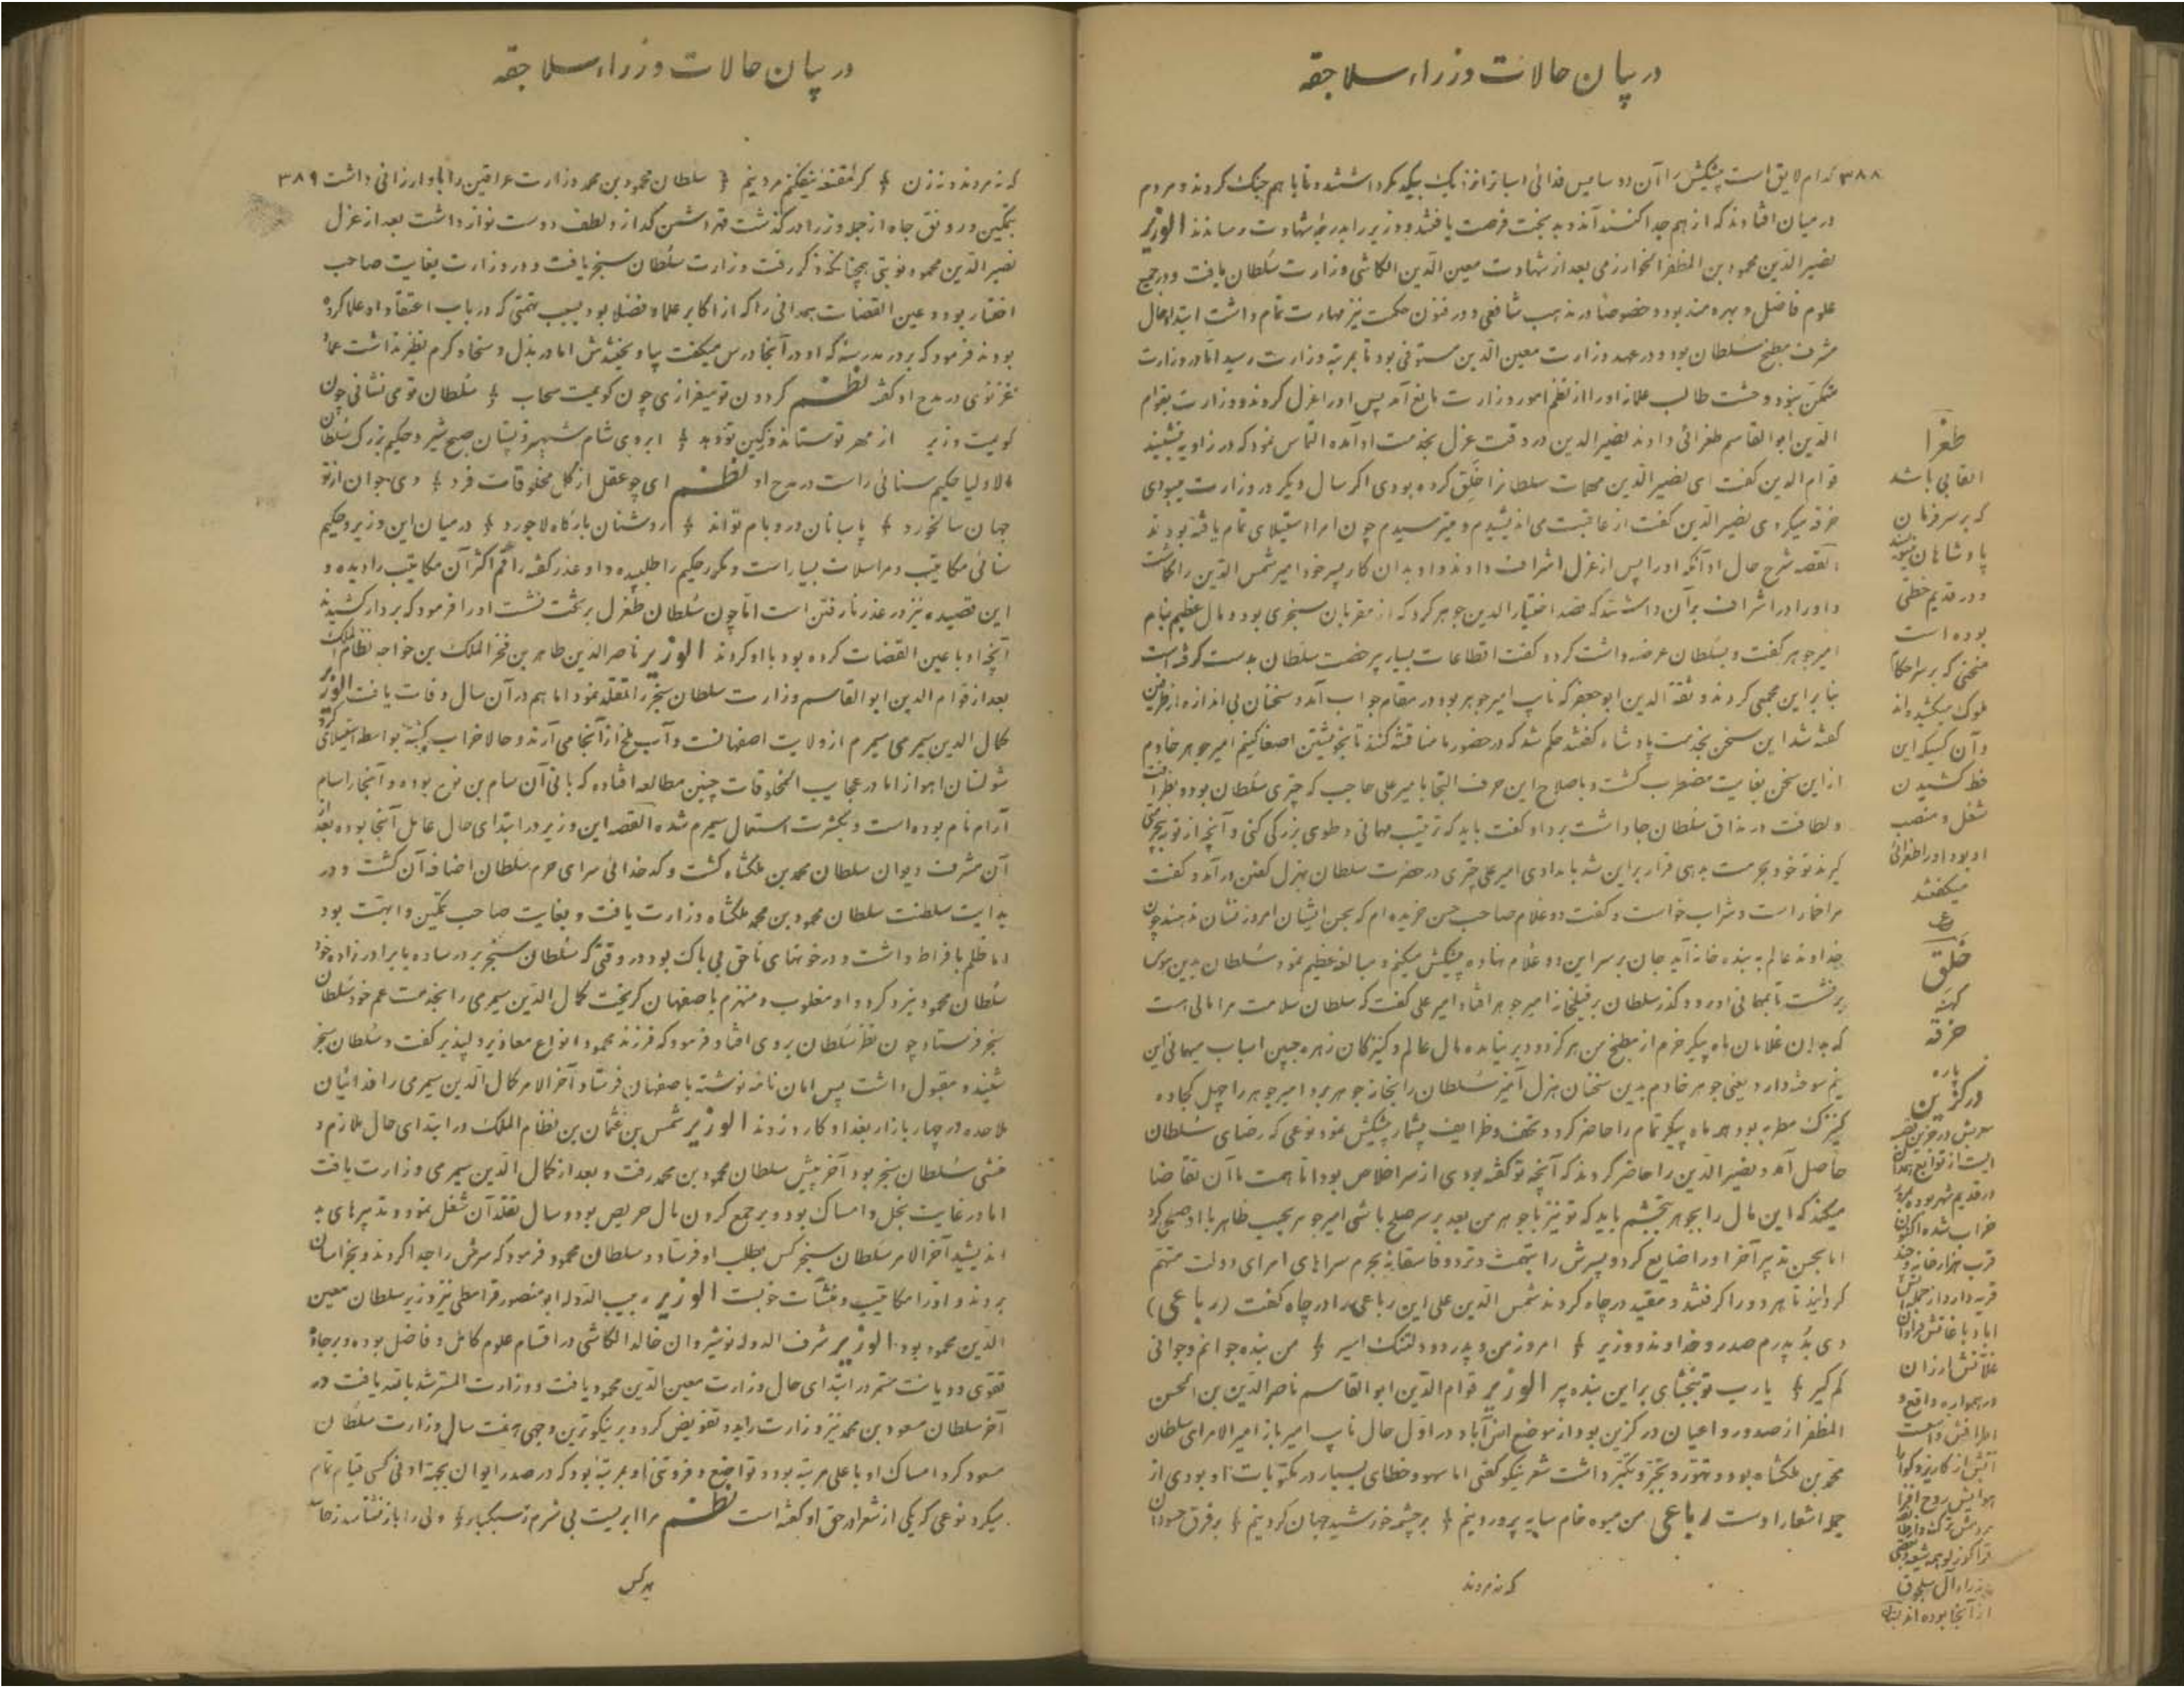 در بیان حالات وزراء سلاجقه
۳۸۸ کدام لایق است پیشکش را آن دو سایس فدائی اسبان را نزدیک بیکدیکر داشتند و تا با هم جنک کردند و مردم
در میان افتادند که از هم جدا کنند آندو بدبخت فرصت یافتند و وزیر را بدرجهٔ شهادت رساندند الوزیر
نصیر الدین محمود بن المظفر الخوارزمی بعد از شهادت معین الدین الکاشی وزارت سلطان یافت و در جمیع
علوم فاضل و بهره‌مند بود و خصوصا در مذهب شافعی و در فنون حکمت نیز مهارت تمام داشت ابتدا حال
مشرف مطبخ سلطان بود و در عهد وزارت معین الدین مستوفی بود تا بمرتبهٔ وزارت رسید اما در وزارت
متمکن نبود و حشمت طالب علمانه او را از نظم امور وزارت مانع آمد پس او را عزل کردند و وزارت بقوام
الدین ابو القاسم طغرائی دادند نصیر الدین در وقت عزل بخدمت او آمده التماس نمود که در زاویه بنشیند
قوام الدین کفت ای نصیر الدین مهمات سلطانرا خلق کرده بودی اکر سال دیکر در وزارت میبودی
خرقه میکردی نصیر الدین کفت از عاقبت می اندیشیدم و میترسیدم چون امرا استیلای تمام یافته بودند
القصه شرح حال او آنکه او را پس از عزل اشراف دادند و او بدان کار پسر خود امیر شمس الدین را کماشت
و او را در اشراف بر آن داشتند که قصد اختیار الدین جوهر کرد که از مقربان سنجری بود و مال عظیم بنام
امیر جوهر کفت و بسلطان عرضه داشت کرد و کفت اقطاعات بسیار بی رخصت سلطان بدست کرفته است
بنا بر این مجمعی کردند و ثقة الدین ابو جعفر که نایب امیر جوهر بود در مقام جواب آمد و سخنان بی اندازه از طرفین
کفته شد این سخن بخدمت پادشاه کفتند حکم شد که در حضور ما مناقشه کنند تا بخویشتن اصغا کنیم امیر جوهر خادم
از این سخن بغایت مضطرب کشت و باصلاح این حرف التجا با میر علی حاجب که چتری سلطان بود و بظرافت
و لطافت در مذاق سلطان جا داشت برد او کفت باید که ترتیب مهمانی و طوی بزرکی کنی و آنچه از تو بجرمتی
کیرند تو خود بحرمت بدهی قرار بر این شد بامدادی امیر علی چتری در حضرت سلطان بهزل کفتن در آمد و کفت
مرا خمار است و شراب خواست و کفت دو غلام صاحب حسن خریده‌ام که بحسن ایشان امروز نشان ندهند چون
خداوند عالم به بنده خانه آید جان بر سر این دو غلام نهاده پیشکش میکنم و مبالغه عظیم نمود سلطان بدین هوس
برنشست تا بمهمانی او رود کذر سلطان بر فیلخانهٔ امیر جوهر افتاد امیر علی کفت که سلطان سلامت مرا مالی است
که بدان غلامان ماه پیکر خرم از مطبخ من هرکز دود بر نیامده مال عالم و کنیزکان زهره جبین اسباب میهمانی این
نیم سوخته دارد یعنی جوهر خادم بدین سخنان هزل آمیز سلطان را بخانهٔ جوهر برد امیر جوهر را چهل کجاوه
کنیزک مطربه بود همه ماه پیکر تمام را حاضر کرد و تحف و ظرایف بیشمار پیشکش نمود نوعی که رضای سلطان
حاصل آمد و نصیر الدین را حاضر کردند که آنچه تو کفته بودی از سر اخلاص بود اما همت ما آن تقاضا
میکند که این مال را بجوهر بخشیم باید که تو نیز با جوهر من بعد بر سر صلح باشی امیر جوهر بحسب ظاهر با او صلح کرد
اما بحسن تدبیر آخر او را ضایع کرد و پسرش را بتهمت و تردد فاسقانه بحرم سراهای امرای دولت متهم
کردانید تا هر دو را کرفتند و مقید در چاه کردند شمس الدین علی این رباعی را در چاه کفت (رباعی)
دی بُد پدرم صدر و خداوند و وزیر امروز من و پدر دو دلتنک اسیر من بنده جوانم و جوانی
کم کیر یا رب تو ببخشای بر این بنده پیر الوزیر قوام الدین ابو القاسم ناصر الدین بن الحسن
المظفر از صدور و اعیان درکزین بود از موضع انس‌آباد و در اول حال نایب امیر باز امیر الامرای سلطان
محمد بن ملکشاه بود و تهور و تجبر و تکبر داشت شعر نیکو کفتی اما سهو و خطای بسیار در مکتوبات او بودی از
جمله اشعار اوست رباعی من میوه خام سایه پرورد نیم بر چشمه خورشید جهان کرد نیم بر فرق حسودان
که نه مردند
طغرا
القابی باشد
که بر سر فرمان
پادشاهان نویسند
و در قدیم خطی
بوده است
منحنی که بر سر احکام
ملوک میکشیده‌اند
و آن کسیکه این
خط کشیدن
شغل و منصب
او بود او را طغرائی
میکفتند
خَلَق
کهنه
خرقه
پاره
درکزین
خراب شده اکنون
غلاتش ارزان
از آنجا بوده‌اند
در بیان حالات وزراء سلاجقه
که نه مردند و نه زن کر مقنعه نیفکنم مرد نیم سلطان محمود بن محمد وزارت عراقین را باو ارزانی داشت ۳۸۹
بتمکین و رونق جاه از جمله وزرا در کذشت قهر دشمن کداز و لطف دوست نواز داشت بعد از عزل
نصیر الدین محمود نوبتی همچنانکه ذکر رفت وزارت سلطان سنجر یافت و در وزارت بغایت صاحب
اختیار بود و عین القضات همدانی را که از اکابر علما و فضلا بود بسبب تهمتی که در باب اعتقاد او علما کرده
بودند فرمود که بر در مدرسهٔ که او در آنجا درس میکفت بیاویختندش اما در بذل و سخا و کرم نظیر نداشت عمادِ
غزنوی در مدح او کفته نظم کردون تو میفرازی چون کویمت سحاب سلطان تو می نشانی چون
کویمت وزیر از مهر تو ستاند و ز کین تو دهد ابروی شام شهپر و پستان صبح شیر و حکیم بزرک سلطان
الاولیا حکیم سنائی راست در مدح او نظم ای چو عقل از کل مخلوقات فرد وی جوان از تو
جهان سالخورد پاسبانان در و بام تواند روشنان بارکاه لاجورد در میان این وزیر و حکیم
سنائی مکاتیب و مراسلات بسیار است و مکرر حکیم را طلبیده و او عذر کفته راقم اکثر آن مکاتیب را دیده و
این قصیده نیز در عذر نارفتن است اما چون سلطان طغرل بر تخت نشست او را فرمود که بر دار کشیدند
آنچه او با عین القضات کرده بود با او کردند الوزیر ناصر الدین طاهر بن فخر الملک بن خواجه نظام الملک
بعد از قوام الدین ابو القاسم وزارت سلطان سنجر را تقلد نمود اما هم در آن سال وفات یافت الوزیر
کمال الدین سمیرمی سمیرم از ولایت اصفهانست و آب یخ از آنجا می آرند و حالا خراب کشته بواسطه استیلای کرد
شولستان اهواز اما در عجایب المخلوقات چنین مطالعه افتاده که بانی آن سام بن نوح بوده و آنجا را سام
آرام نام بوده است و بکثرت استعمال سمیرم شده القصه این وزیر در ابتدای حال عامل آنجا بوده بعد
آن مشرف دیوان سلطان محمد بن ملکشاه کشت و کدخدائی سرای حرم سلطان اضافه آن کشت و در
بدایت سلطنت سلطان محمود بن محمد ملکشاه وزارت یافت و بغایت صاحب تمکین و ابهت بود
اما ظلم با فراط داشت و در خونهای ناحق بی باک بود در وقتی که سلطان سنجر بر در ساوه با برادر زاده خود
سلطان محمود نبرد کرد و او مغلوب و منهزم باصفهان کریخت کمال الدین سمیرمی را بخدمت عم خود سلطان
سنجر فرستاد چون نظر سلطان بر وی افتاد فرمود که فرزند محمود انواع معاذیر دلپذیر کفت و سلطان سنجر
شنید و مقبول داشت پس امان نامه نوشته باصفهان فرستاد آخر الامر کمال الدین سمیرمی را فدائیان
ملاحده در چهار بازار بغداد کارد زدند الوزیر شمس بن عثمان بن نظام الملک در ابتدای حال ملازم و
منشی سلطان سنجر بود آخر پیش سلطان محمود بن محمد رفت و بعد از کمال الدین سمیرمی وزارت یافت
اما در غایت بخل و امساک بود و بر جمع کردن مال حریص بود و سال تقلد آن شغل نمود و تدبیرهای بد
اندیشید آخر الامر سلطان سنجر کس بطلب او فرستاد و سلطان محمود فرمود که سرش را جدا کردند و بخراسان
بردند و او را مکاتیب و منشآت خوبست الوزیر ربیب الدوله ابو منصور قراطی نیز وزیر سلطان معین
الدین محمود بود الوزیر شرف الدوله نوشیروان خالد الکاشی در اقسام علوم کامل و فاضل بوده و بر جادهٔ
تقوی و دیانت مستمر در ابتدای حال وزارت معین الدین محمود یافت و وزارت المسترشد بالله یافت در
آخر سلطان مسعود بن محمد نیز وزارت را بدو تفویض کرد و بر نیکوترین وجهی هفت سال وزارت سلطان
مسعود کرد امساک او با علی مرتبه بود و تواضع و فروتنی او بمرتبهٔ بود که در صدر ایوان بجهة ادنی کسی قیام تمام
میکرد نوعی که یکی از شعرا در حق او کفته است نظم مرا ابریست بی شرم ز سبکبار ولی را باز نشناسد ز
هر کس